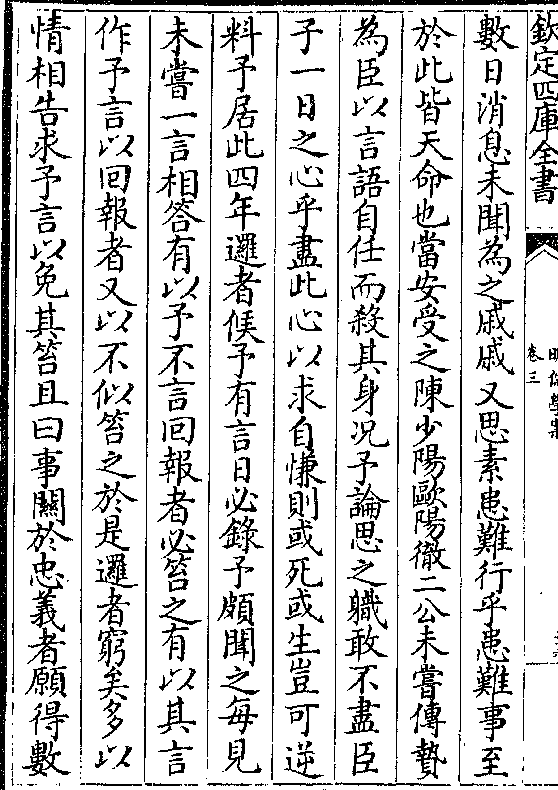 欽定四庫全書
明儒學案
卷三
數日消息未聞為之戚戚又思素患難行乎患難事至
於此皆天命也當安受之陳少陽歐陽徹二公未嘗傳贄
為臣以言語自任而殺其身况予論思之職敢不盡臣
子一日之心乎盡此心以求自慊則或死或生豈可逆
料予居此四年邏者候予有言日必錄予頗聞之每見
未嘗一言相答有以予不言回報者必笞之有以其言
作予言以回報者又以不似笞之於是邏者窮矣多以
情相告求予言以免其笞且曰事關於忠義者願得數